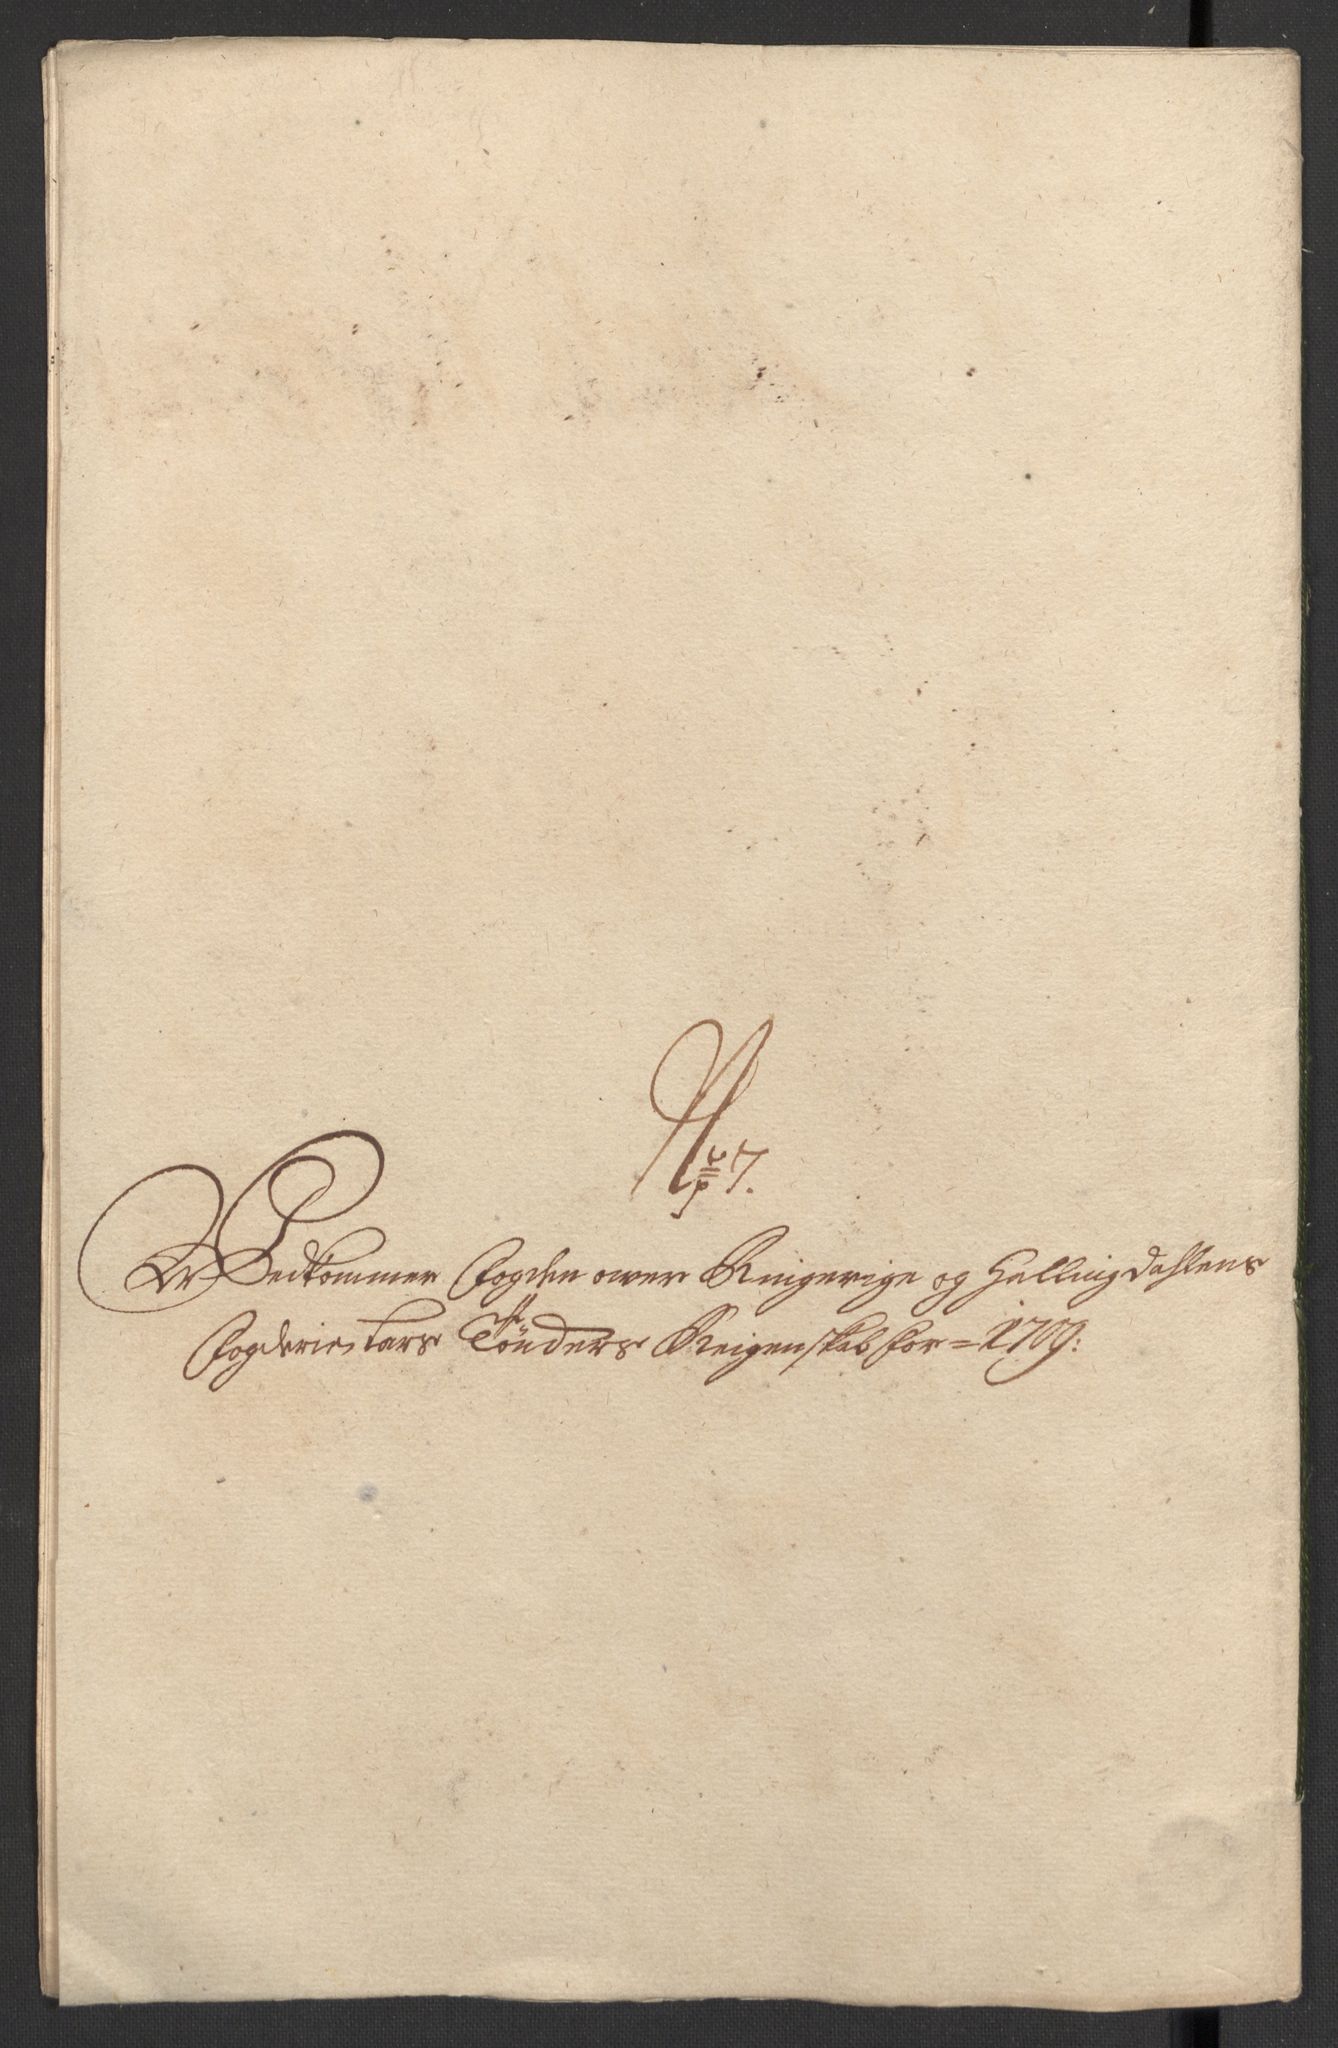 No 7.
Wedkommer Fogden ower Ringerige og Hallingdahlens
Fogderie, Lars Tönders Reigenskab for = 1709: